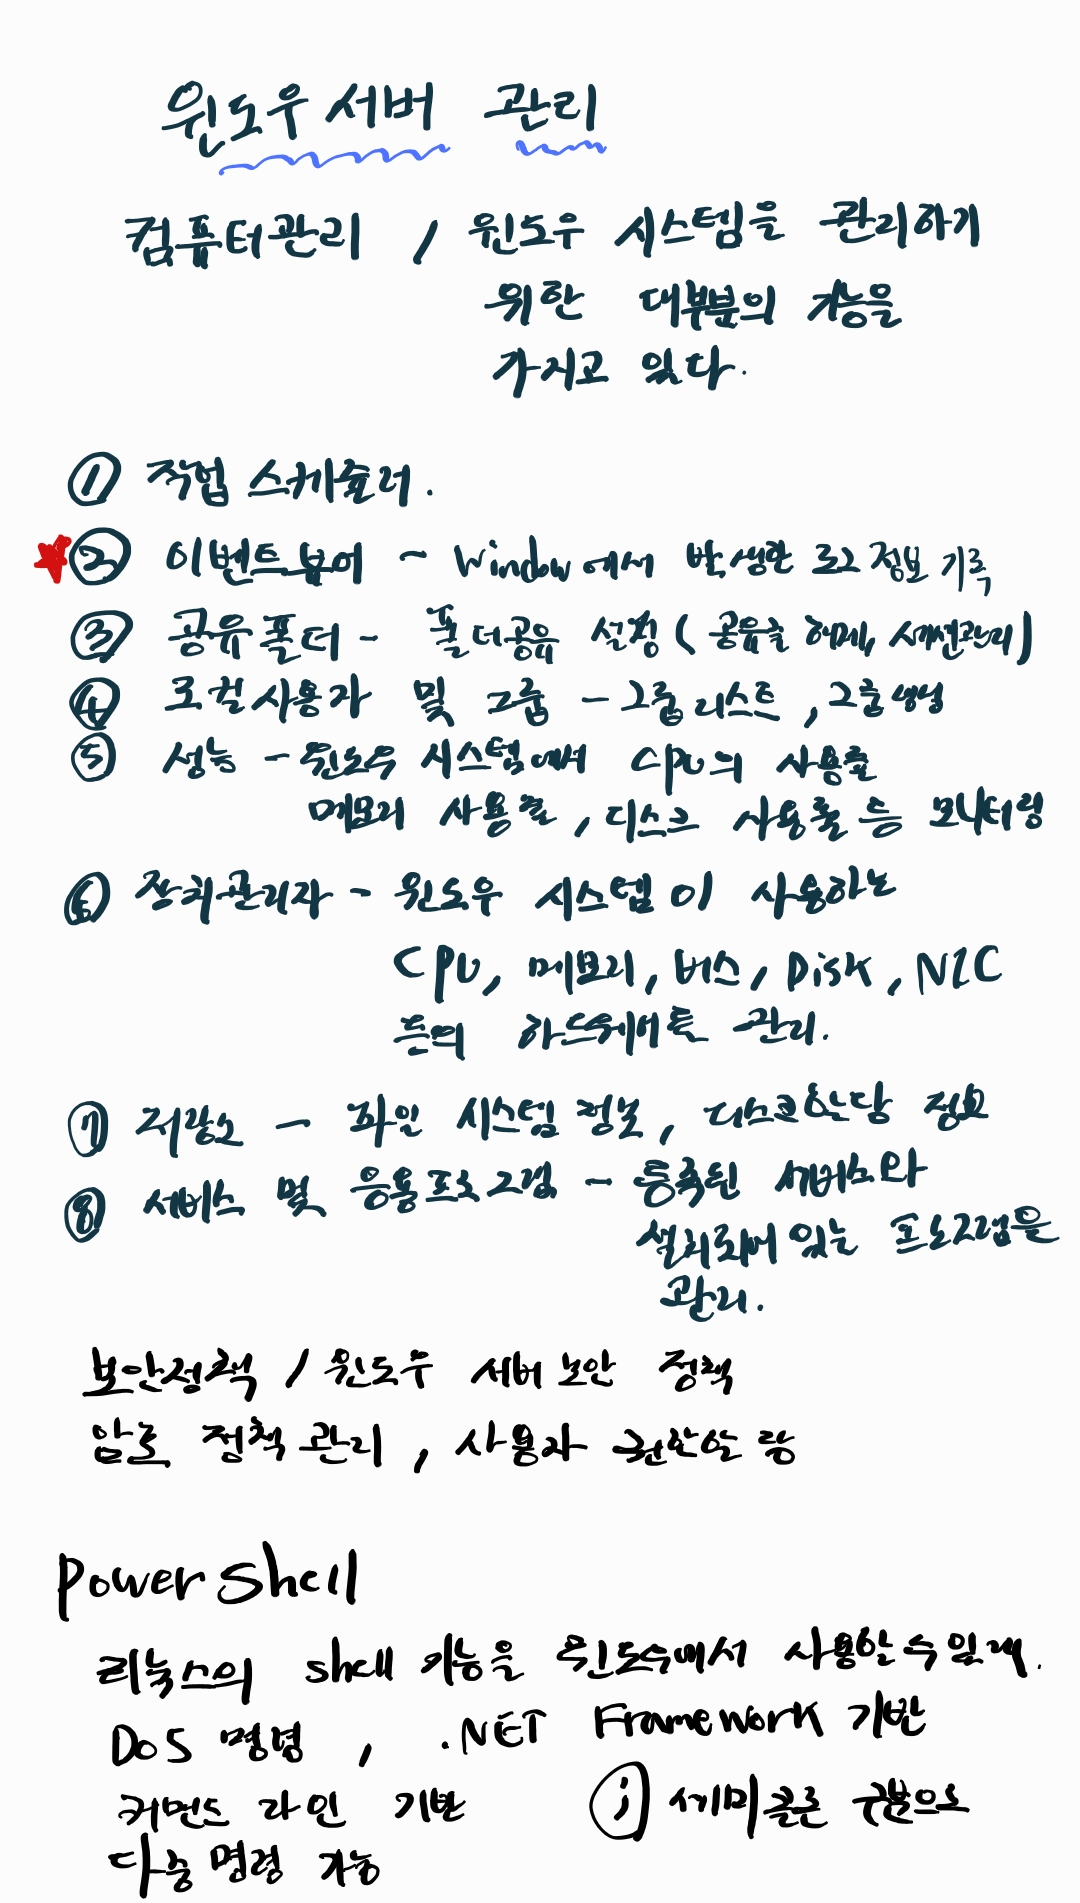 윈도우 서버 관리
컴퓨터관리 / 윈도우 시스템을 관리하기
위한 대부분의 기능을
가지고 있다.
① 작업 스케쥴러.
② 이벤트 뷰어 ~ Window에서 발생한 로그 정보 기록
③ 공유폴더 - 폴더공유 설정 (공유를 해제, 세션관리)
④ 로컬사용자 및 그룹 - 그룹 리스트, 그룹
⑤ 성능 - 윈도우 시스템에서 CPU의 사용률
메모리 사용률, 디스크 사용률 등 모니터링
⑥ 장치관리자 - 윈도우 시스템이 사용하는
CPU, 메모리, 버스, Disk, NIC
등의 하드웨어를 관리.
⑦ 저장소 - 파일 시스템 정보, 디스크할당 정보
⑧ 서비스 및 응용프로그램 - 등록된 서비스와
설치되어 있는 프로그램을
관리.
보안정책 / 윈도우 서버 보안 정책
암호 정책 관리, 사용자 권한할당
Power Shell
리눅스의 shell 기능을 윈도우에서 사용할 수 있게.
DOS 명령, .NET Framework 기반
커맨드 라인 기반 ; 세미콜론 구분으로
다중 명령 가능